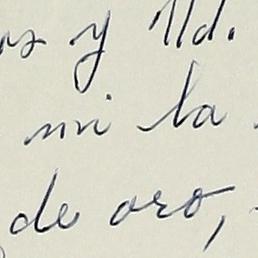 y Ud.
mi la
de oro,